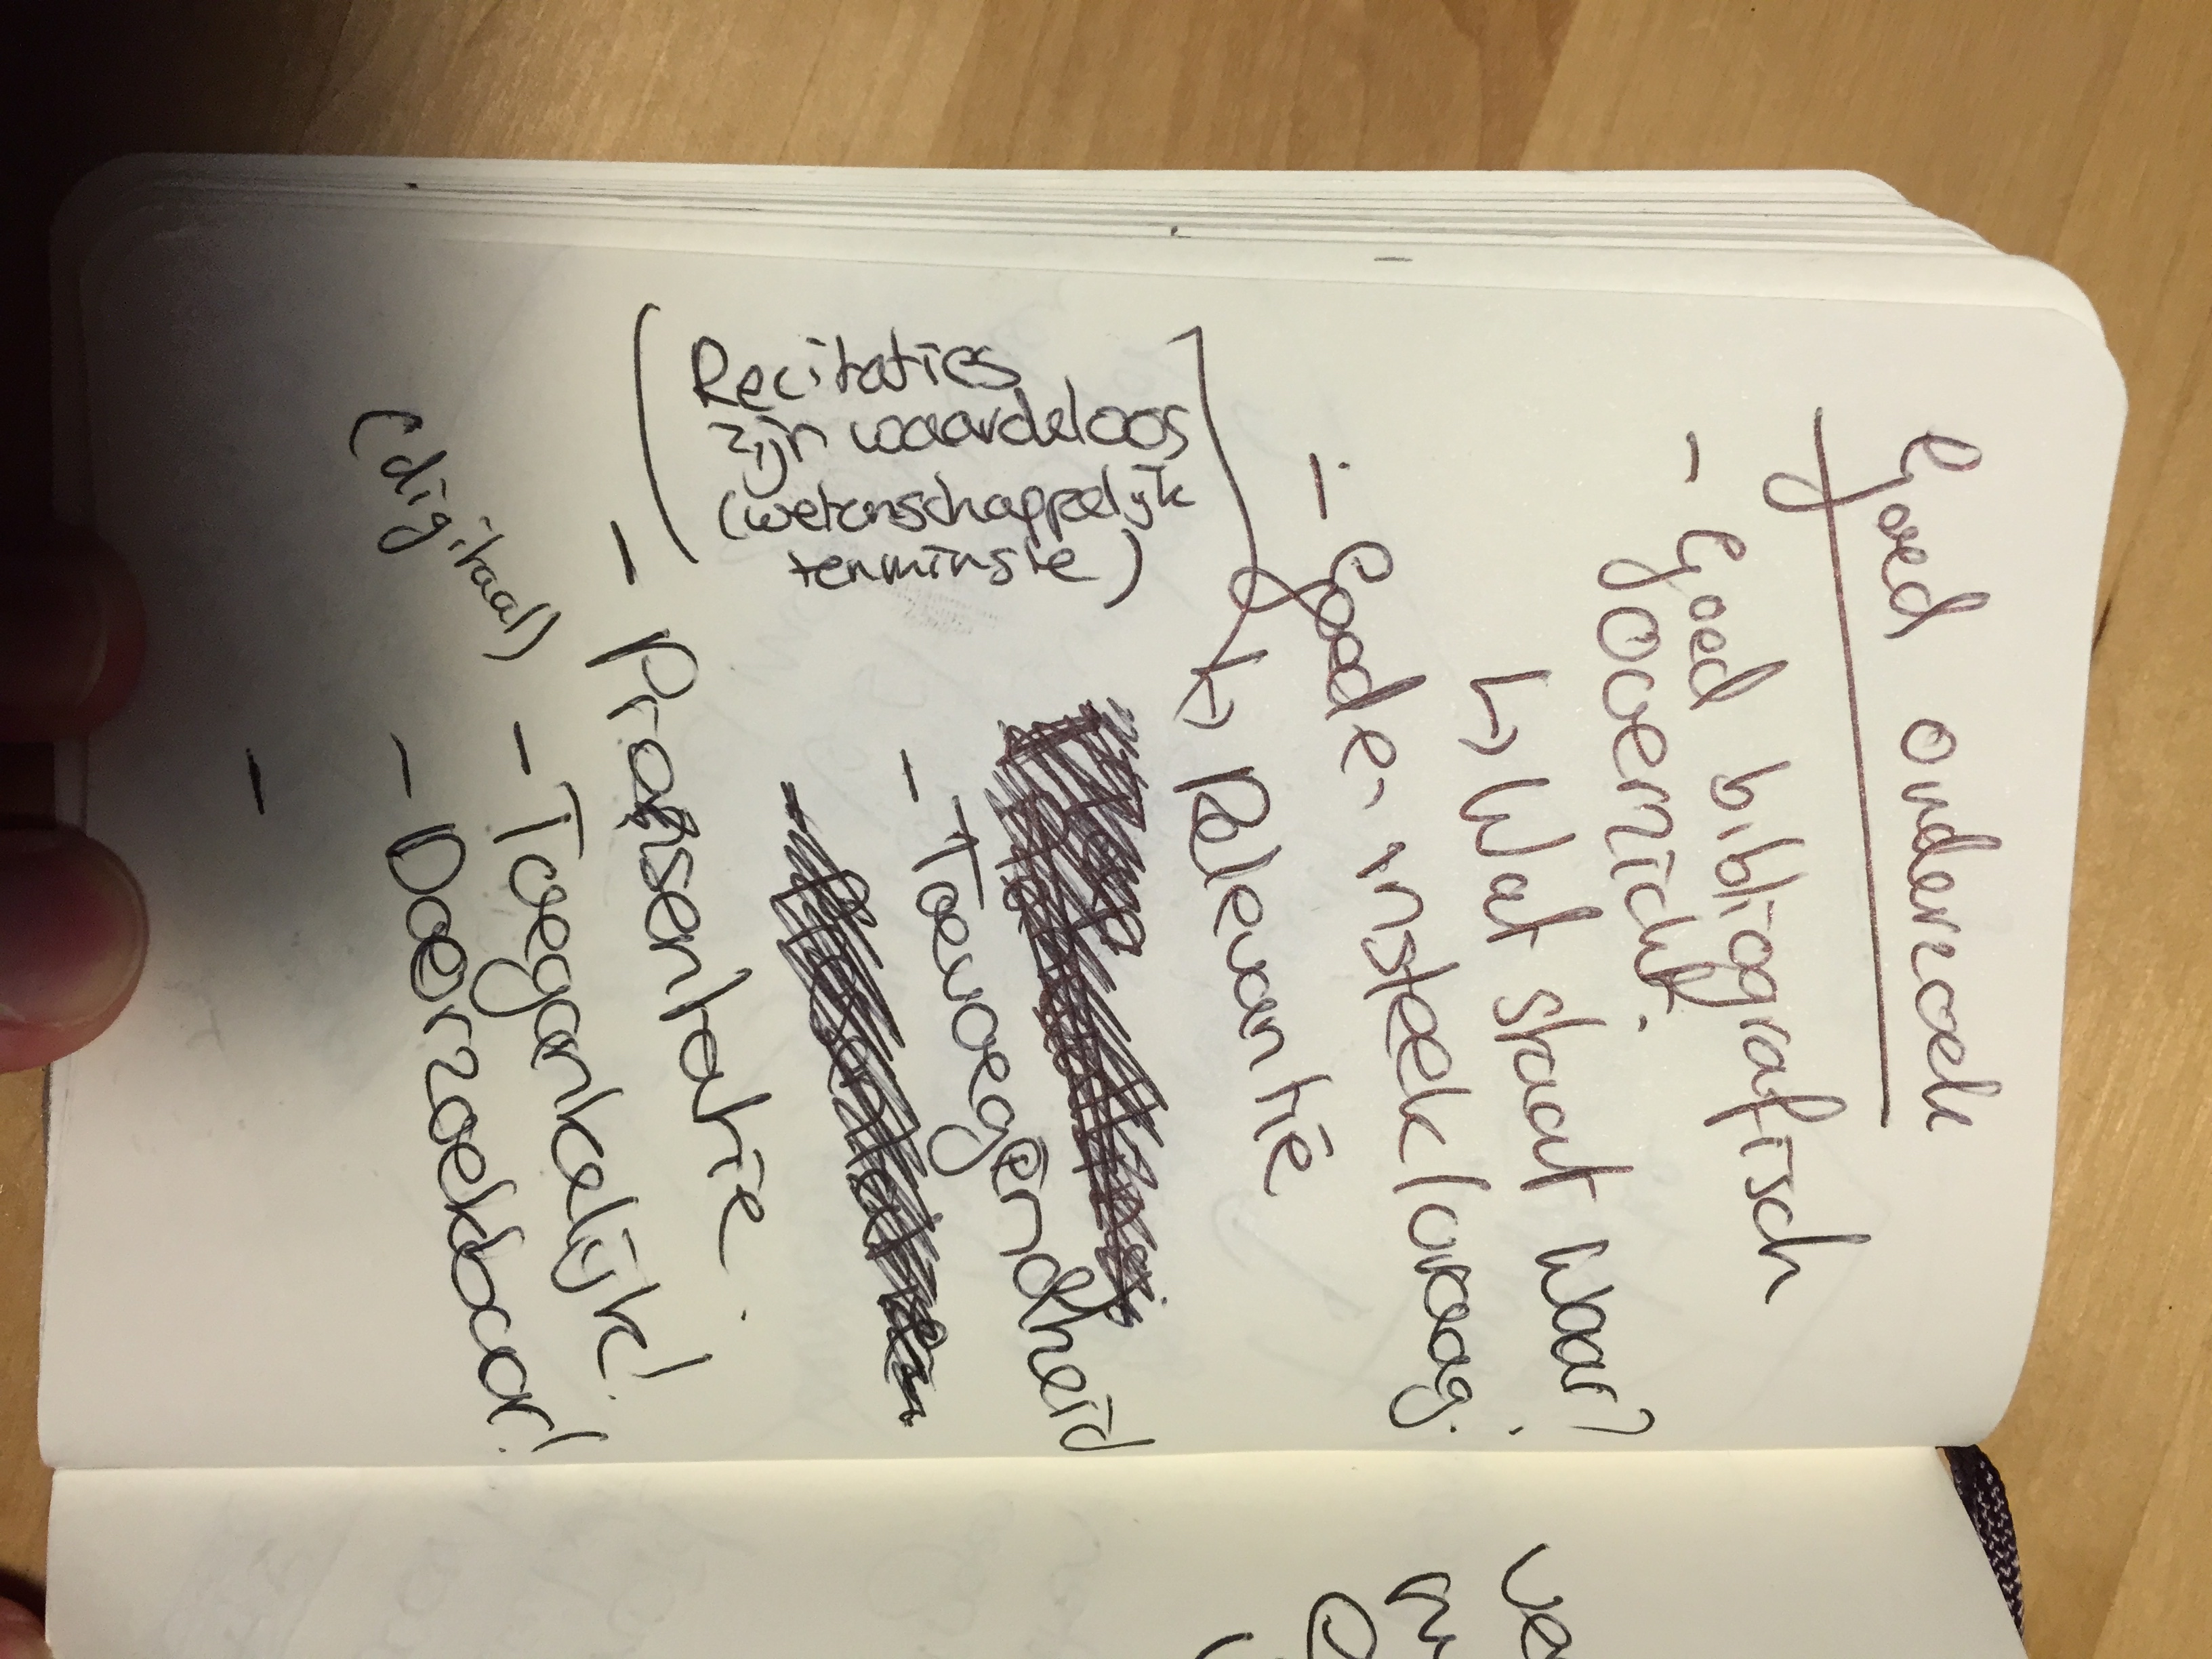 Goed onderzoek
- Goed bibliografisch
overzicht.
↳ Wat staat waar?
- Goede insteek/vraag.
↳ Relevantie
- Toevoegendheid
Recitaties
zijn waardeloos
(wetenschappelijk
tenminste)
- Presentatie.
- Toegankelijk!
(digitaal)
- Doorzoekbaar!
-